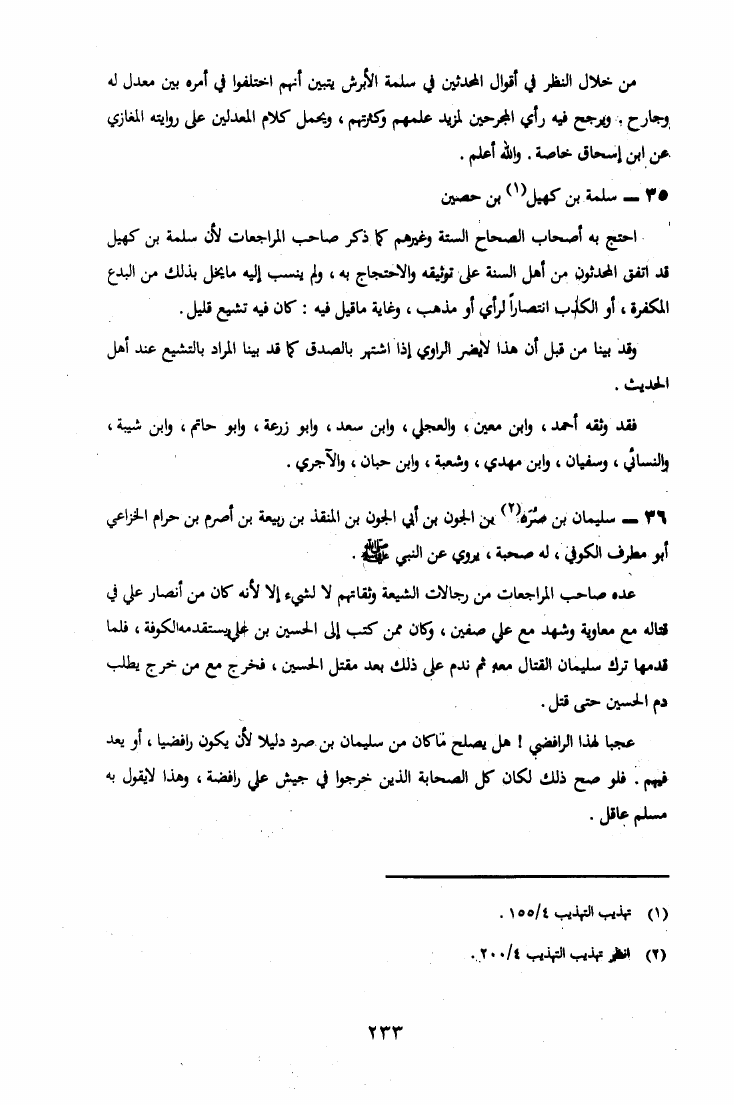 من خلال النظر في أقوال المحدثين في سلمة الأبرش يتبين أنهم اختلفوا في أمره بين معدل له
وجارح . ويرجح فيه رأي المجرحين لمزيد علمهم وكثرتهم ، ويحمل كلام المعدلين على روايته المغازي
عن ابن إسحاق خاصة . والله أعلم .
٣٥ — سلمة بن كهيل(١) بن حصين
احتج به أصحاب الصحاح الستة وغيرهم كما ذكر صاحب المراجعات لأن سلمة بن كهيل
قد اتفق المحدثون من أهل السنة على توثيقه والاحتجاج به ، ولم ينسب إليه مايخل بذلك من البدع
المكفرة ، أو الكذب انتصاراً لرأي أو مذهب ، وغاية ماقيل فيه : كان فيه تشيع قليل .
وقد بينا من قبل أن هذا لايضر الراوي إذا اشتهر بالصدق كما قد بينا المراد بالتشيع عند أهل
الحديث .
فقد وثقه أحمد ، وابن معين ، والعجلي ، وابن سعد ، وابو زرعة ، وابو حاتم ، وابن شيبة ،
والنسائي ، وسفيان ، وابن مهدي ، وشعبة ، وابن حبان ، والآجري .
٣٦ — سليمان بن صُرَد(٢) بن الجون بن أبي الجون بن المنقذ بن ربيعة بن أصرم بن حرام الخزاعي
أبو مطرف الكوفي ، له صحبة ، يروي عن النبي ﷺ .
عده صاحب المراجعات من رجالات الشيعة وثقاتهم لا لشيء إلا لأنه كان من أنصار علي في
قتاله مع معاوية وشهد مع علي صفين ، وكان ممن كتب إلى الحسين بن علي يستقدمه الكوفة ، فلما
قدمها ترك سليمان القتال معه ثم ندم على ذلك بعد مقتل الحسين ، فخرج مع من خرج يطلب
دم الحسين حتى قتل .
عجبا لهذا الرافضي ! هل يصلح ماكان من سليمان بن صرد دليلا لأن يكون رافضيا ، أو يعد
فيهم . فلو صح ذلك لكان كل الصحابة الذين خرجوا في جيش علي رافضة ، وهذا لايقول به
مسلم عاقل .
(١) تهذيب التهذيب ١٥٥/٤ .
(٢) انظر تهذيب التهذيب ٢٠٠/٤ .
٢٣٣